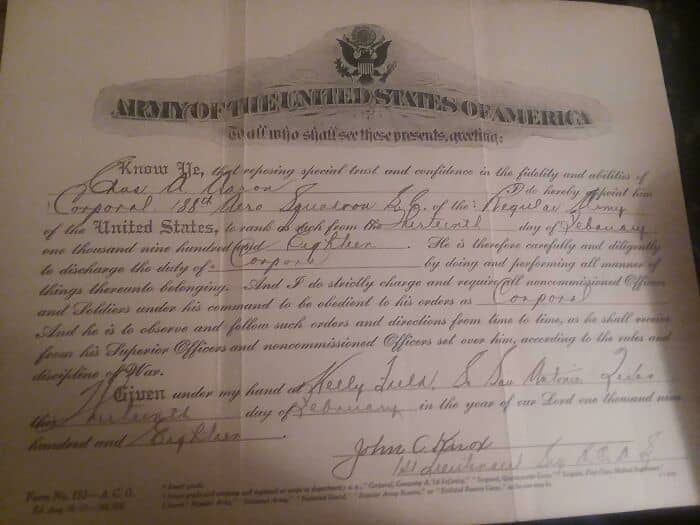 ARMY OF THE UNITED STATES OF AMERICA
To all who shall see these presents, greeting:
Know Ye, that reposing special trust and confidence in the fidelity and abilities of
Chas A. I do hereby appoint him
Corporal, 188th Aero Squadron S.C. of the Regular Army
of the United States, to rank as such from the day of February
one thousand nine hundred and Eighteen. He is therefore carefully and diligently
to discharge the duty of Corporal by doing and performing all manner of
things thereunto belonging. And I do strictly charge and require all noncommissioned Officers
and Soldiers under his command to be obedient to his orders as Corporal
And he is to observe and follow such orders and directions from time to time, as he shall receive
from his Superior Officers and noncommissioned Officers set over him, according to the rules and
discipline of War.
Given under my hand at Kelly Field, So San Antonio Texas
this day of February in the year of our Lord one thousand nine
hundred and Eighteen.
John C. Knox
1st Lieutenant
Form No. 152—A. G. O.